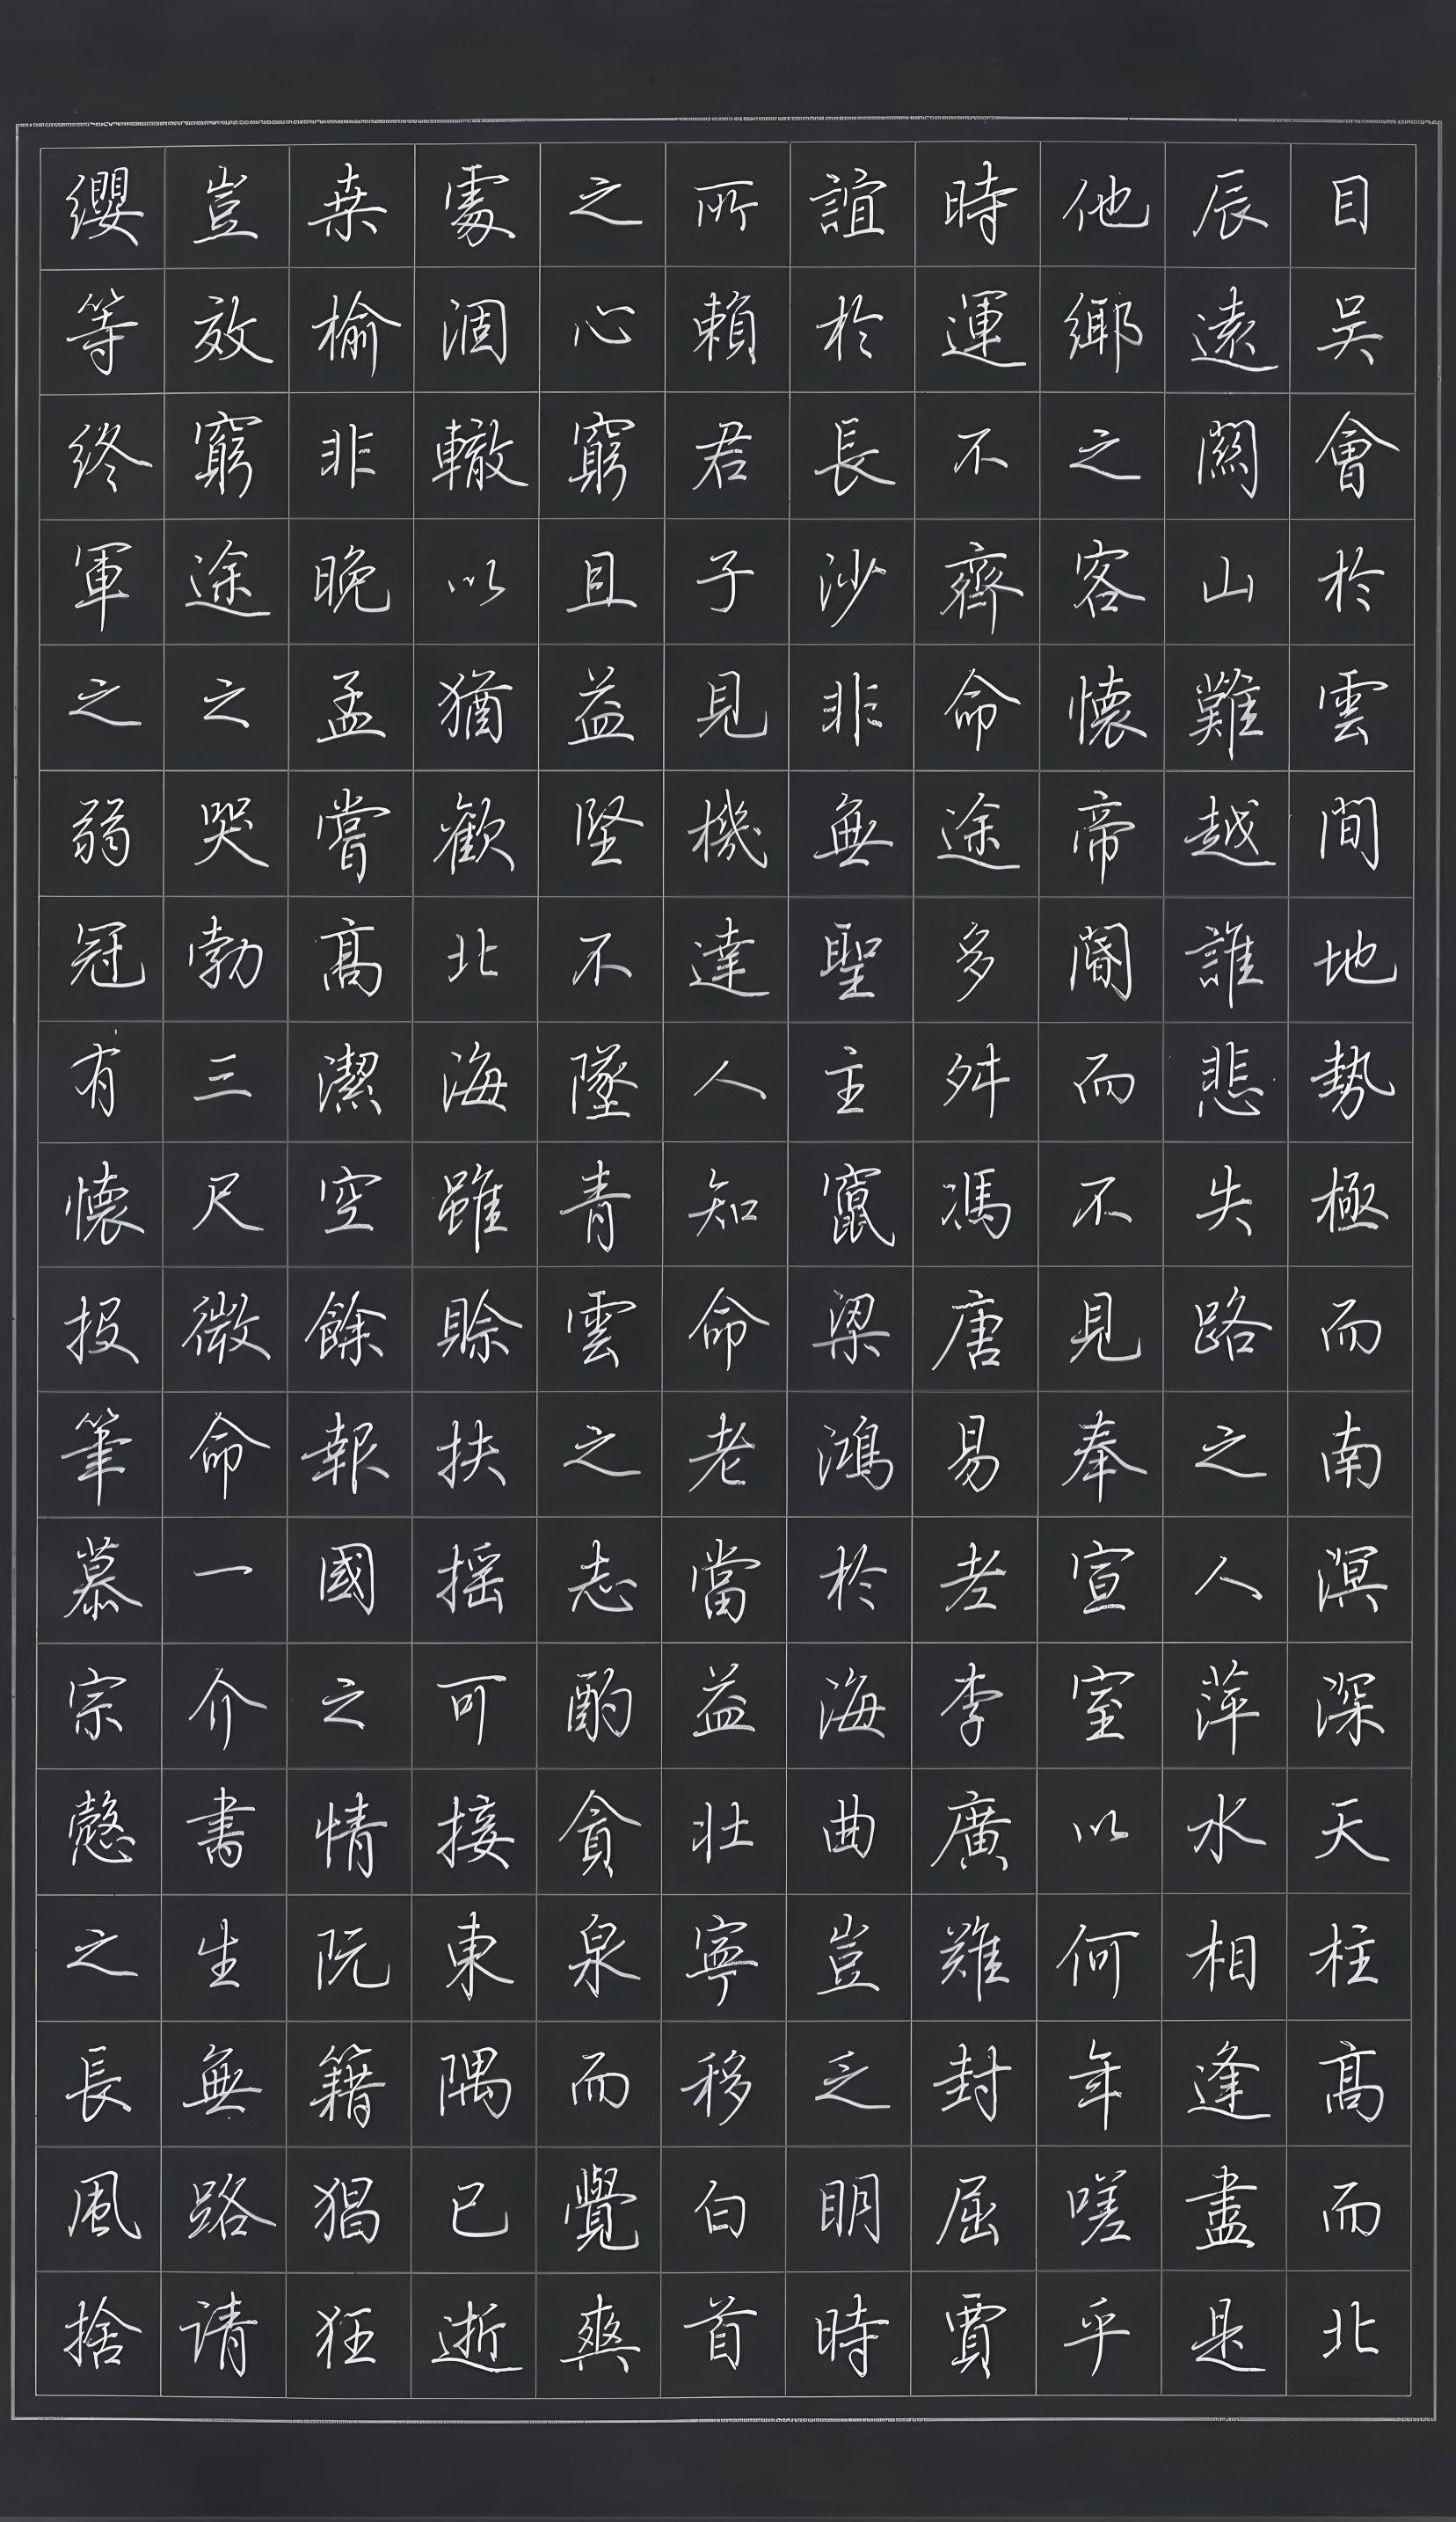 目吳會於雲間地勢極而南溟深天柱高而北
辰遠關山難越誰悲失路之人萍水相逢盡是
他鄉之客懷帝閽而不見奉宣室以何年嗟乎
時運不齊命途多舛馮唐易老李廣難封屈賈
誼於長沙非無聖主竄梁鴻於海曲豈乏明時
所賴君子見機達人知命老當益壯寧移白首
之心窮且益堅不墜青雲之志酌貪泉而覺爽
處涸轍以猶歡北海雖賒扶搖可接東隅已逝
桑榆非晚孟嘗高潔空餘報國之情阮籍猖狂
豈效窮途之哭勃三尺微命一介書生無路请
纓等终軍之弱冠有懷投筆慕宗愨之長風捨